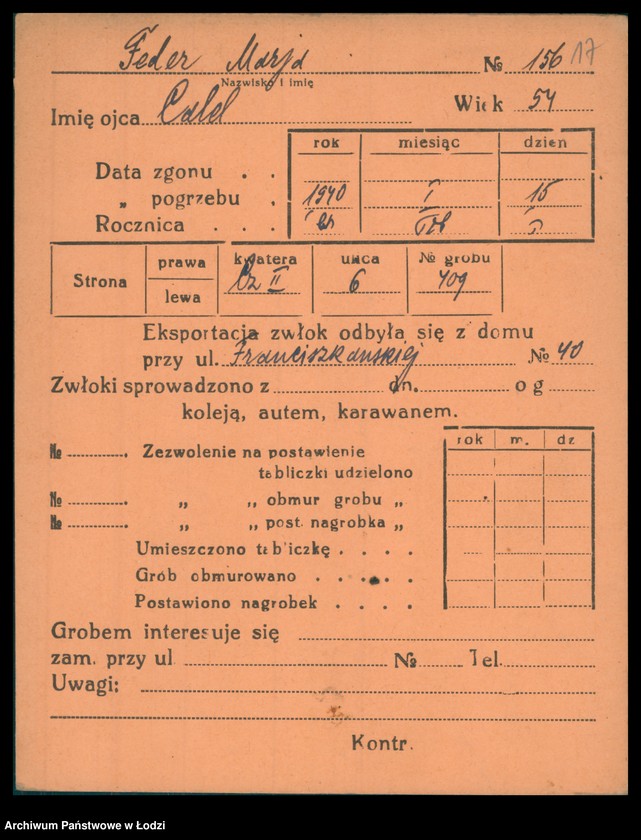 Feder Marja № 156 17
Nazwisko i imię
Imię ojca Calel Wiek 54
rok miesiąc dzień
Data zgonu . .
„ pogrzebu . 1940 I 15
Rocznica . . .
Strona prawa lewa kwatera Cz II ulica 6 № grobu 409
Eksportacja zwłok odbyła się z domu
przy ul. Franciszkańskiej № 40
Zwłoki sprowadzono z dn. o g
koleją, autem, karawanem.
rok m. dz
№ . Zezwolenie na postawienie
tabliczki udzielono
№ . „ „ obmur grobu „
№ . „ „ post. nagrobka „
Umieszczono tabliczkę . . . .
Grób obmurowano . . . . .
Postawiono nagrobek . . . .
Grobem interesuje się
zam. przy ul. № Tel.
Uwagi:
Kontr.
Archiwum Państwowe w Łodzi